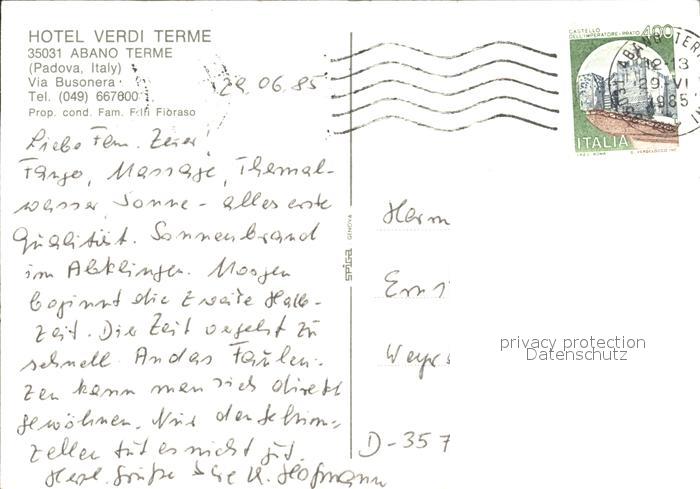 HOTEL VERDI TERME
35031 ABANO TERME
(Padova, Italy)
Via Busonera
Tel. (049) 667600
Prop. cond. Fam. F.lli Fioraso
29.06.85
Liebe Fam.
Fango, Massage, Thermal-
wasser, Sonne - alles erste
Qualität. Sonnenbrand
im Abklingen. Morgen
beginnt die zweite Halb-
zeit. Die Zeit vergeht zu
schnell. An das Faulen-
zen kann man sich direkt
gewöhnen. Nur den Hirn-
zellen tut es nicht gut.
Herzl. Grüße Ihre K. Hofmann
spiga GENOVA
CASTELLO
DELL'IMPERATORE - PRATO 400
ITALIA
ABANO TERME
12-13
29.VI
1985
Herrn
Ernst
Weyrs
D-357
privacy protection
Datenschutz